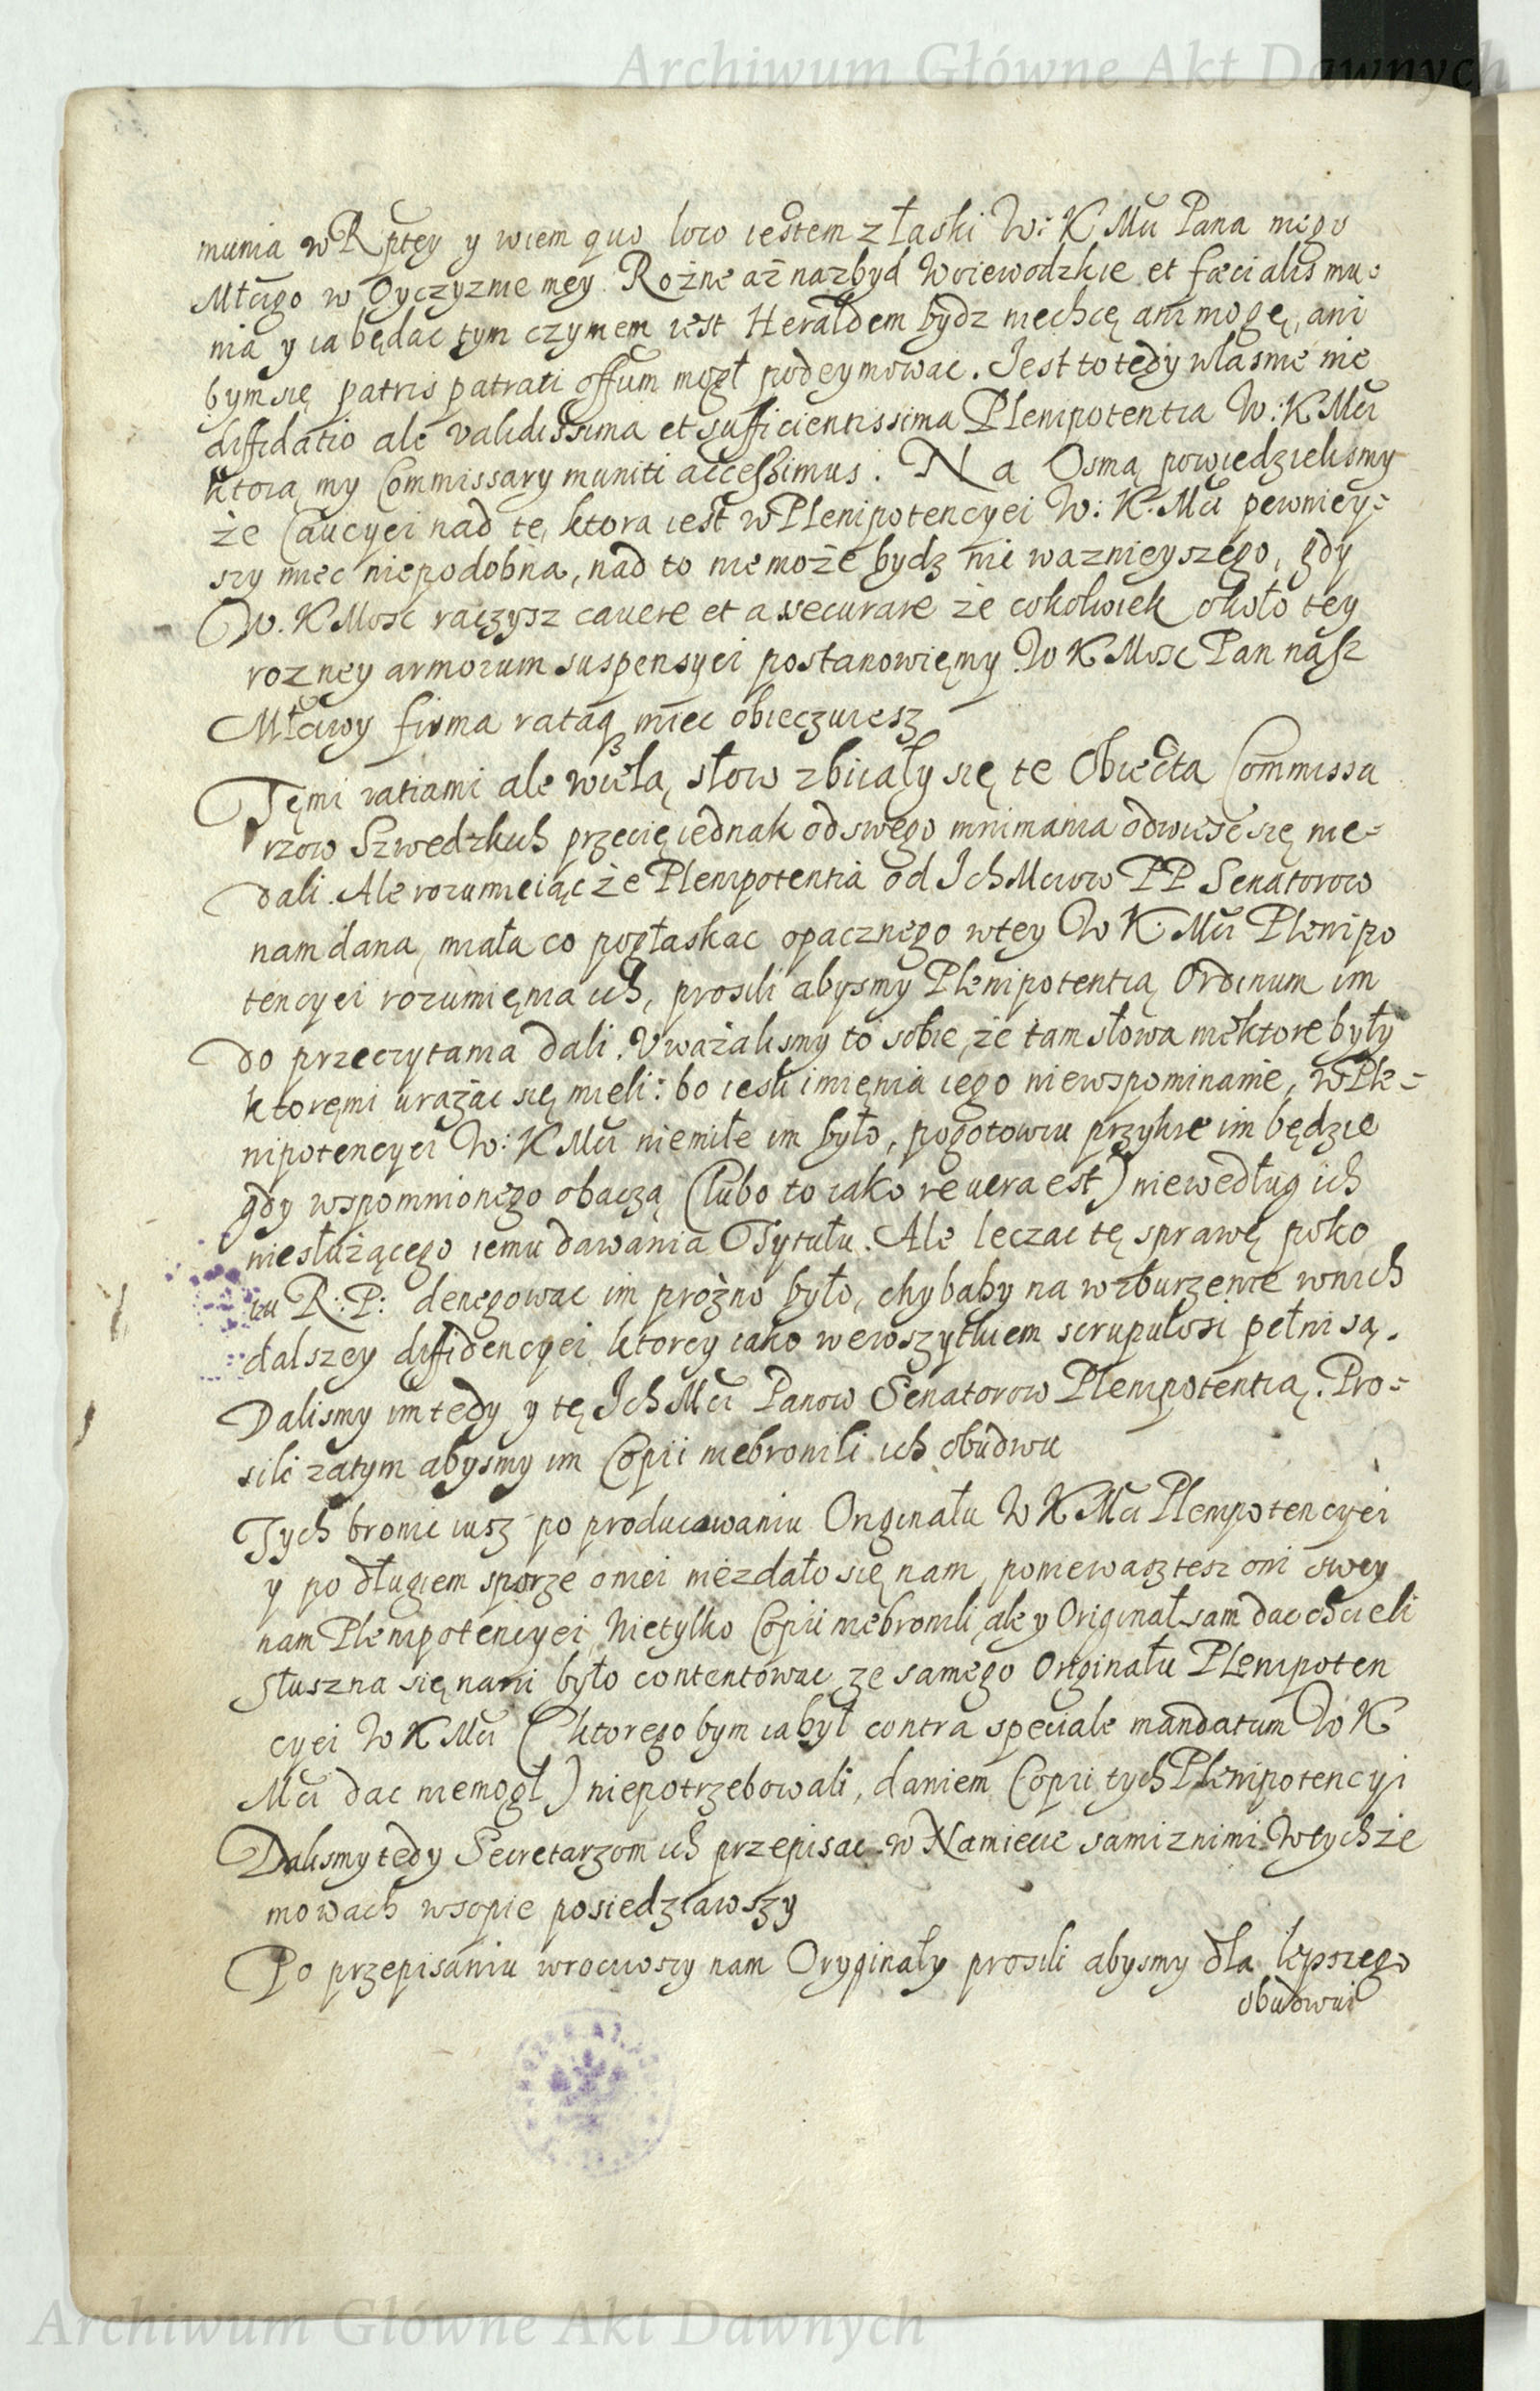 Archiwum Główne Akt Dawnych
munia w Rptey y wiem quo loco iestem z łaski W: K Mci Pana mego
Młcigo w Oyczyznie mey. Rożne aż nazbyd Woiewodzkie et fœcialis mu=
nia y ia będąc tym czymem iest Heraldem bydz niechcę ani mogę, ani
bym się patris patrati offum mogł podeymowac. Iest to tedy własnie nie
diffidatio ale validissima et sufficientissima Plenipotentia W: K Mci
ktorą my Commissary muniti accessimus. Na Osmą powiedzielismy
że Caucyei nad te, ktora iest w Plenipotencyei W: K. Mci pewniey=
szy miec niepodobna, nad to niemoże bydz nic waznieyszego, gdy
W. K Mosc raczysz cavere et assecurare że cokolwiek około tey
rozney armorum suspensyei postanowięmy W K Mosc Pan nasz
Młciwy firma rataq miec obieczuiesz
Tęmi ratiami ale wielą słow zbiiały się te Obiecta Commissa
rzow Szwedzkich przecię iednak od swego mnimania odwiesc się nie=
dali. Ale rozumieiąc że Plenipotentia od Ich Mciow PP Senatorow
nam dana, miała co pogłaskac opacznego w tey W K. Mci Plenipo
tencyei rozumięnia ich, prosili abysmy Plenipotentią Ordinum im
do przeczytania dali. Uważalismy to sobie, że tam słowa niektore były
ktoręmi urażac się mieli: bo iesli imięnia iego niewspominanie, w Ple=
nipotencyei W: K Mci niemiłe im było, pogotowiu przykre im będzie
gdy wspomnionego obaczą (lubo to iako re uera est) niewedług ich
niesłużącego iemu dawania Tytułu. Ale leczac tę sprawę poko
iu R: P: denegowac im prożno było, chybaby na wzburzenie w nich
dalszey diffidencyei ktorey iako wewszytkiem scrupulosi pełni są.
Dalismy im tedy y tę Ich Mci Panow Senatorow Plenipotentią. Pro=
sili zatym abysmy im Copii niebronili ich obudwu
Tych bronic iusz po producowaniu Originału W K Mci Plenipotencyei
y po długiem sporze o niei niezdało się nam, poniewasz tesz oni swey
nam Plenipotencyei Nietylko Copii niebronili, ale y Originał sam dac chcieli
Słuszna się nam było contentowac ze samego Originału Plenipoten
cyei W K Mci (ktorego bym ia był contra speciale mandatum W K
Mci dac niemogł) niepotrzebowali, daniem Copii tych Plenipotencyi
Dalismy tedy Secretarzom ich przepisac w Namiecie sami z nimi w tychże
mowach w szopie posiedziawszy
Po przepisaniu wrociwszy nam Oryginały prosili abysmy dla lepszego
obudwui
Archiwum Główne Akt Dawnych